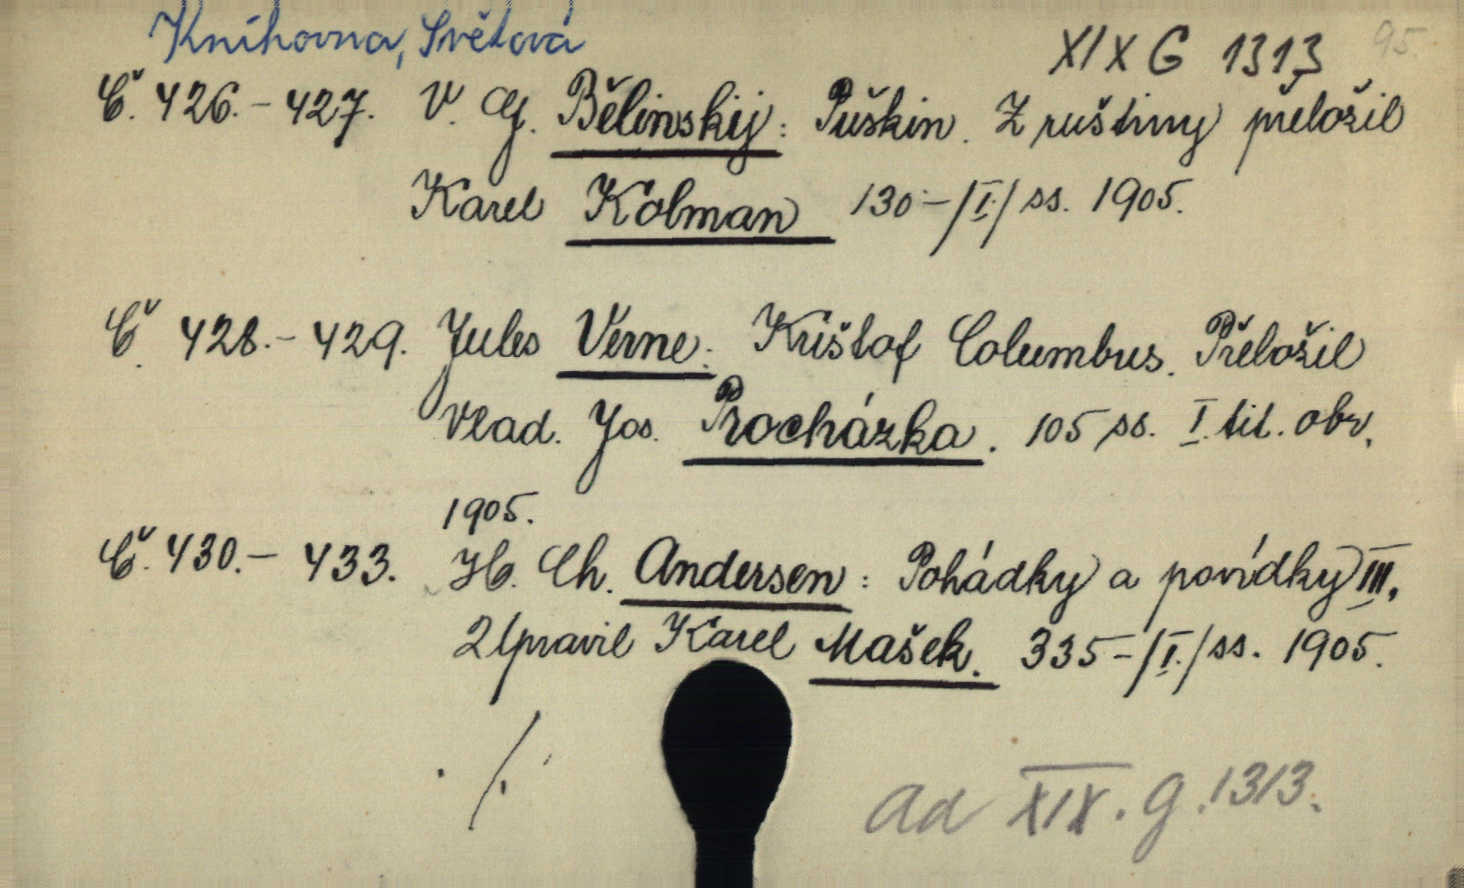 Knihovna, Světová
XIX G 1313 95.
Č. 426.-427. V. G. Bělinskij: Puškin. Z ruštiny přeložil
Karel Kolman 130-/I./ ss. 1905.
Č. 428.-429. Jules Verne: Krištof Columbus. Přeložil
Vlad. Jos. Procházka. 105 ss. I. tit. obr.
1905.
Č. 430.- 433. H. Ch. Andersen: Pohádky a povídky III.
Upravil Karel Mašek. 335-/I./ ss. 1905.
./.
ad XIX. G. 1313.